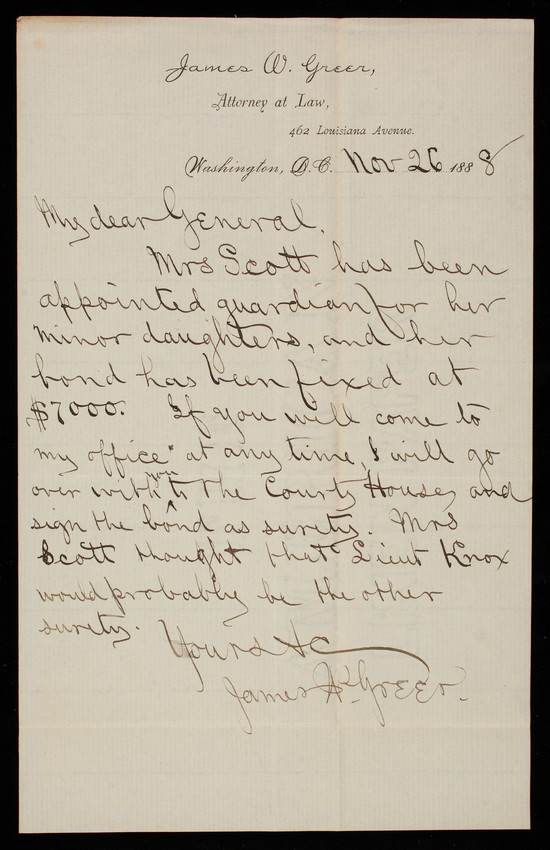 James W. Greer,
Attorney at Law,
462 Louisiana Avenue.
Washington, D.C. Nov 26 1888
My dear General,
Mrs Scott has been
appointed guardian for her
minor daughters, and her
bond has been fixed at
$7000. If you will come to
my office at any time, I will go
over with you to the Court House, and
sign the bond as surety. Mrs
Scott thought that Lieut Knox
would probably be the other
surety.
Yours &c
James W. Greer.